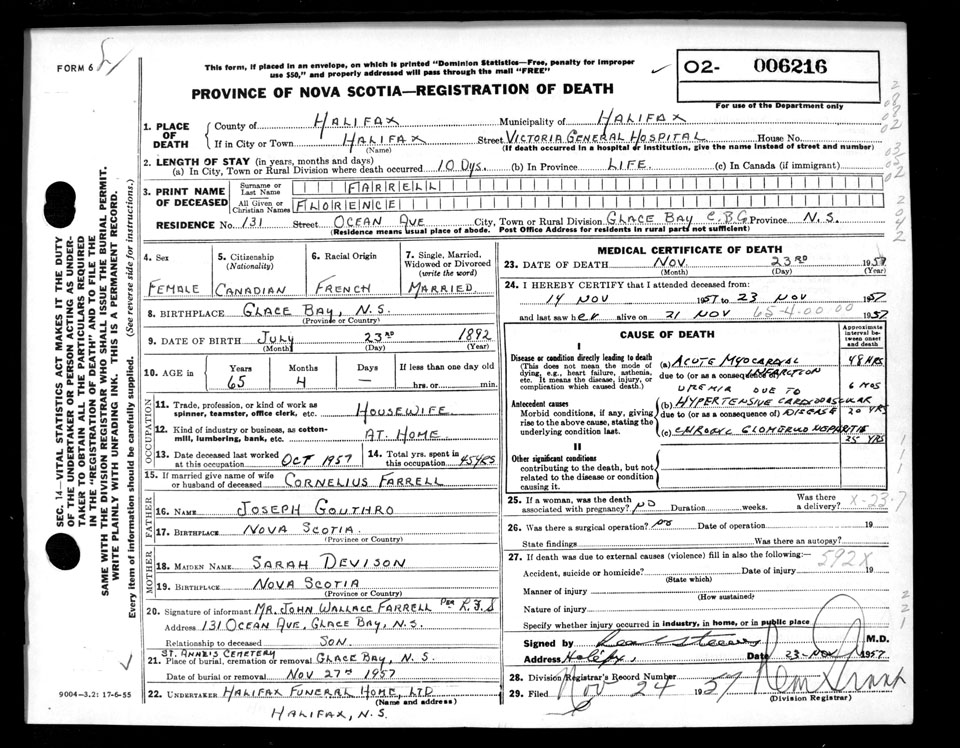 FORM 6
This form, if placed in an envelope, on which is printed "Dominion Statistics—Free, penalty for improper
use $50," and properly addressed will pass through the mail "FREE"
PROVINCE OF NOVA SCOTIA—REGISTRATION OF DEATH
02- 006216
For use of the Department only
1. PLACE OF DEATH
County of HALIFAX Municipality of HALIFAX
If in City or Town HALIFAX Street VICTORIA GENERAL HOSPITAL House No.
(Name) (If death occurred in a hospital or institution, give the name instead of street and number)
2. LENGTH OF STAY (in years, months and days)
(a) In City, Town or Rural Division where death occurred 10 DYS. (b) In Province LIFE. (c) In Canada (if immigrant)
3. PRINT NAME OF DECEASED
Surname or Last Name FARRELL
All Given or Christian Names FLORENCE
RESIDENCE No. 131 Street OCEAN AVE City, Town or Rural Division GLACE BAY C.B.G Province N.S.
(Residence means usual place of abode. Post Office Address for residents in rural parts not sufficient)
4. Sex FEMALE
5. Citizenship (Nationality) CANADIAN
6. Racial Origin FRENCH
7. Single, Married, Widowed or Divorced (write the word) MARRIED
8. BIRTHPLACE GLACE BAY, N.S.
(Province or Country)
9. DATE OF BIRTH July 23RD 1892
(Month) (Day) (Year)
10. AGE in Years Months Days If less than one day old
65 4 — hrs. or min.
OCCUPATION
11. Trade, profession, or kind of work as spinner, teamster, office clerk, etc. HOUSEWIFE
12. Kind of industry or business, as cotton-mill, lumbering, bank, etc. AT HOME
13. Date deceased last worked at this occupation OCT 1957
14. Total yrs. spent in this occupation 45YRS
15. If married give name of wife or husband of deceased CORNELIUS FARRELL
FATHER
16. NAME JOSEPH GOUTHRO
17. BIRTHPLACE NOVA SCOTIA
(Province or Country)
MOTHER
18. MAIDEN NAME SARAH DEVISON
19. BIRTHPLACE NOVA SCOTIA
(Province or Country)
20. Signature of informant MR. JOHN WALLACE FARRELL PER
Address 131 OCEAN AVE, GLACE BAY, N.S.
Relationship to deceased SON.
ST. ANNE'S CEMETERY
21. Place of burial, cremation or removal GLACE BAY, N.S.
Date of burial or removal NOV 27TH 1957
22. UNDERTAKER HALIFAX FUNERAL HOME, LTD
(Name and address)
HALIFAX, N.S.
9004-3.2: 17-6-55
MEDICAL CERTIFICATE OF DEATH
23. DATE OF DEATH NOV. 23RD 1957
(Month) (Day) (Year)
24. I HEREBY CERTIFY that I attended deceased from:
14 NOV 1957 to 23 NOV 1957
and last saw her alive on 21 NOV 1957
65-4-00 00
CAUSE OF DEATH
Approximate interval between onset and death
I
Disease or condition directly leading to death
(This does not mean the mode of dying, e.g., heart failure, asthma, etc. It means the disease, injury, or complication which caused death.)
(a) ACUTE MYOCARDIAL INFARCTION 48 HRS
due to (or as a consequence of)
UREMIA DUE TO 6 MOS
Antecedent causes
Morbid conditions, if any, giving rise to the above cause, stating the underlying condition last.
(b) HYPERTENSIVE CARDIOVASCULAR
due to (or as a consequence of) DISEASE 20 YRS
(c) CHRONIC GLOMERULONEPHRITIS
25 YRS
II
Other significant conditions
contributing to the death, but not related to the disease or condition causing it.
25. If a woman, was the death associated with pregnancy? NO Duration weeks. Was there a delivery?
X-23-7
26. Was there a surgical operation? NO Date of operation 19
State findings Was there an autopsy?
27. If death was due to external causes (violence) fill in also the following:—
592X
Accident, suicide or homicide? Date of injury 19
(State which)
Manner of injury
(How sustained)
Nature of injury
Specify whether injury occurred in industry, in home, or in public place
Signed by M.D.
Address Halifax, Date 23-NOV 1957
28. Division Registrar's Record Number
29. Filed Nov 24 1957
(Division Registrar)
SEC. 14—VITAL STATISTICS ACT MAKES IT THE DUTY
OF THE UNDERTAKER OR PERSON ACTING AS UNDER-
TAKER TO OBTAIN ALL THE PARTICULARS REQUIRED
IN THE "REGISTRATION OF DEATH" AND TO FILE THE
SAME WITH THE DIVISION REGISTRAR WHO SHALL ISSUE THE BURIAL PERMIT.
WRITE PLAINLY WITH UNFADING INK. THIS IS A PERMANENT RECORD.
Every item of information should be carefully supplied. (See reverse side for instructions.)